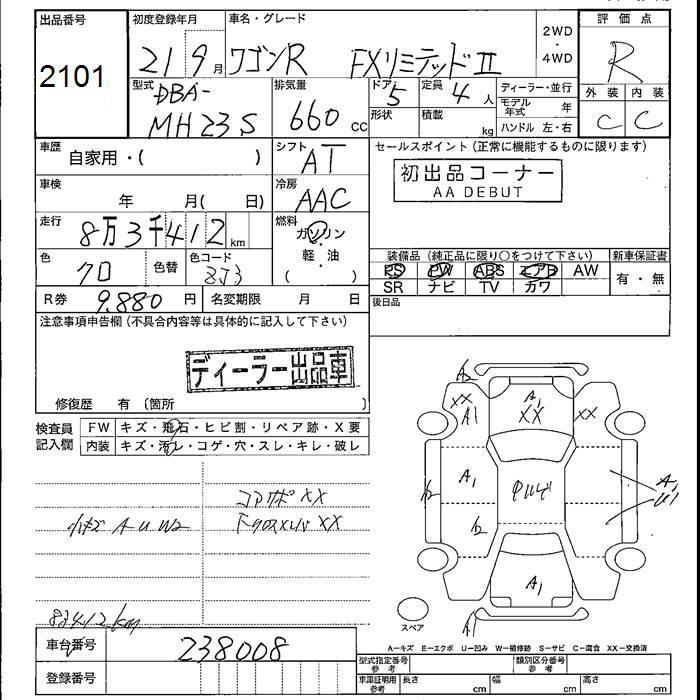 出品番号
2101
初度登録年月
21 9月
車名・グレード
ワゴンR FXリミテッドⅡ
2WD
・
4WD
評価点
R
外装 内装
C C
型式
DBA-
MH23S
排気量
660 cc
ドア 5
形状
定員 4 人
積載 kg
ディーラー・並行
モデル年式 年
ハンドル 左・右
車歴
自家用・( )
シフト
AT
セールスポイント(正常に機能するものに限ります)
初出品コーナー
AA DEBUT
車検
年 月( 日)
冷房
AAC
走行
8万3千412km
燃料
ガソリン
・
軽・油
( )
色
クロ
色替
色コード
ZJ3
装備品(純正品に限り○をつけて下さい)
新車保証書
PS PW ABS エアB AW
SR ナビ TV カワ
有・無
R券 9.880 円
名変期限 月 日
後日品
注意事項申告欄(不具合内容等は具体的に記入して下さい)
ディーラー出品車
修復歴 有 〔箇所 〕
検査員
記入欄
FW キズ・飛石・ヒビ割・リペア跡・X要
内装 キズ・汚れ・コゲ・穴・スレ・キレ・破レ
コアサポXX
小キズ A U W2
83412km
A1
XX
XX
A1
XX
A1
A1
A1
U1
A1
スペア
A1
車台番号
238008
登録番号
A-キズ E-エクボ U-凹み W-補修跡 S-サビ C-腐食 XX-交換済
型式指定番号
参考
類別区分番号
参考
車庫証明用
参考
長さ cm
幅 cm
高さ cm